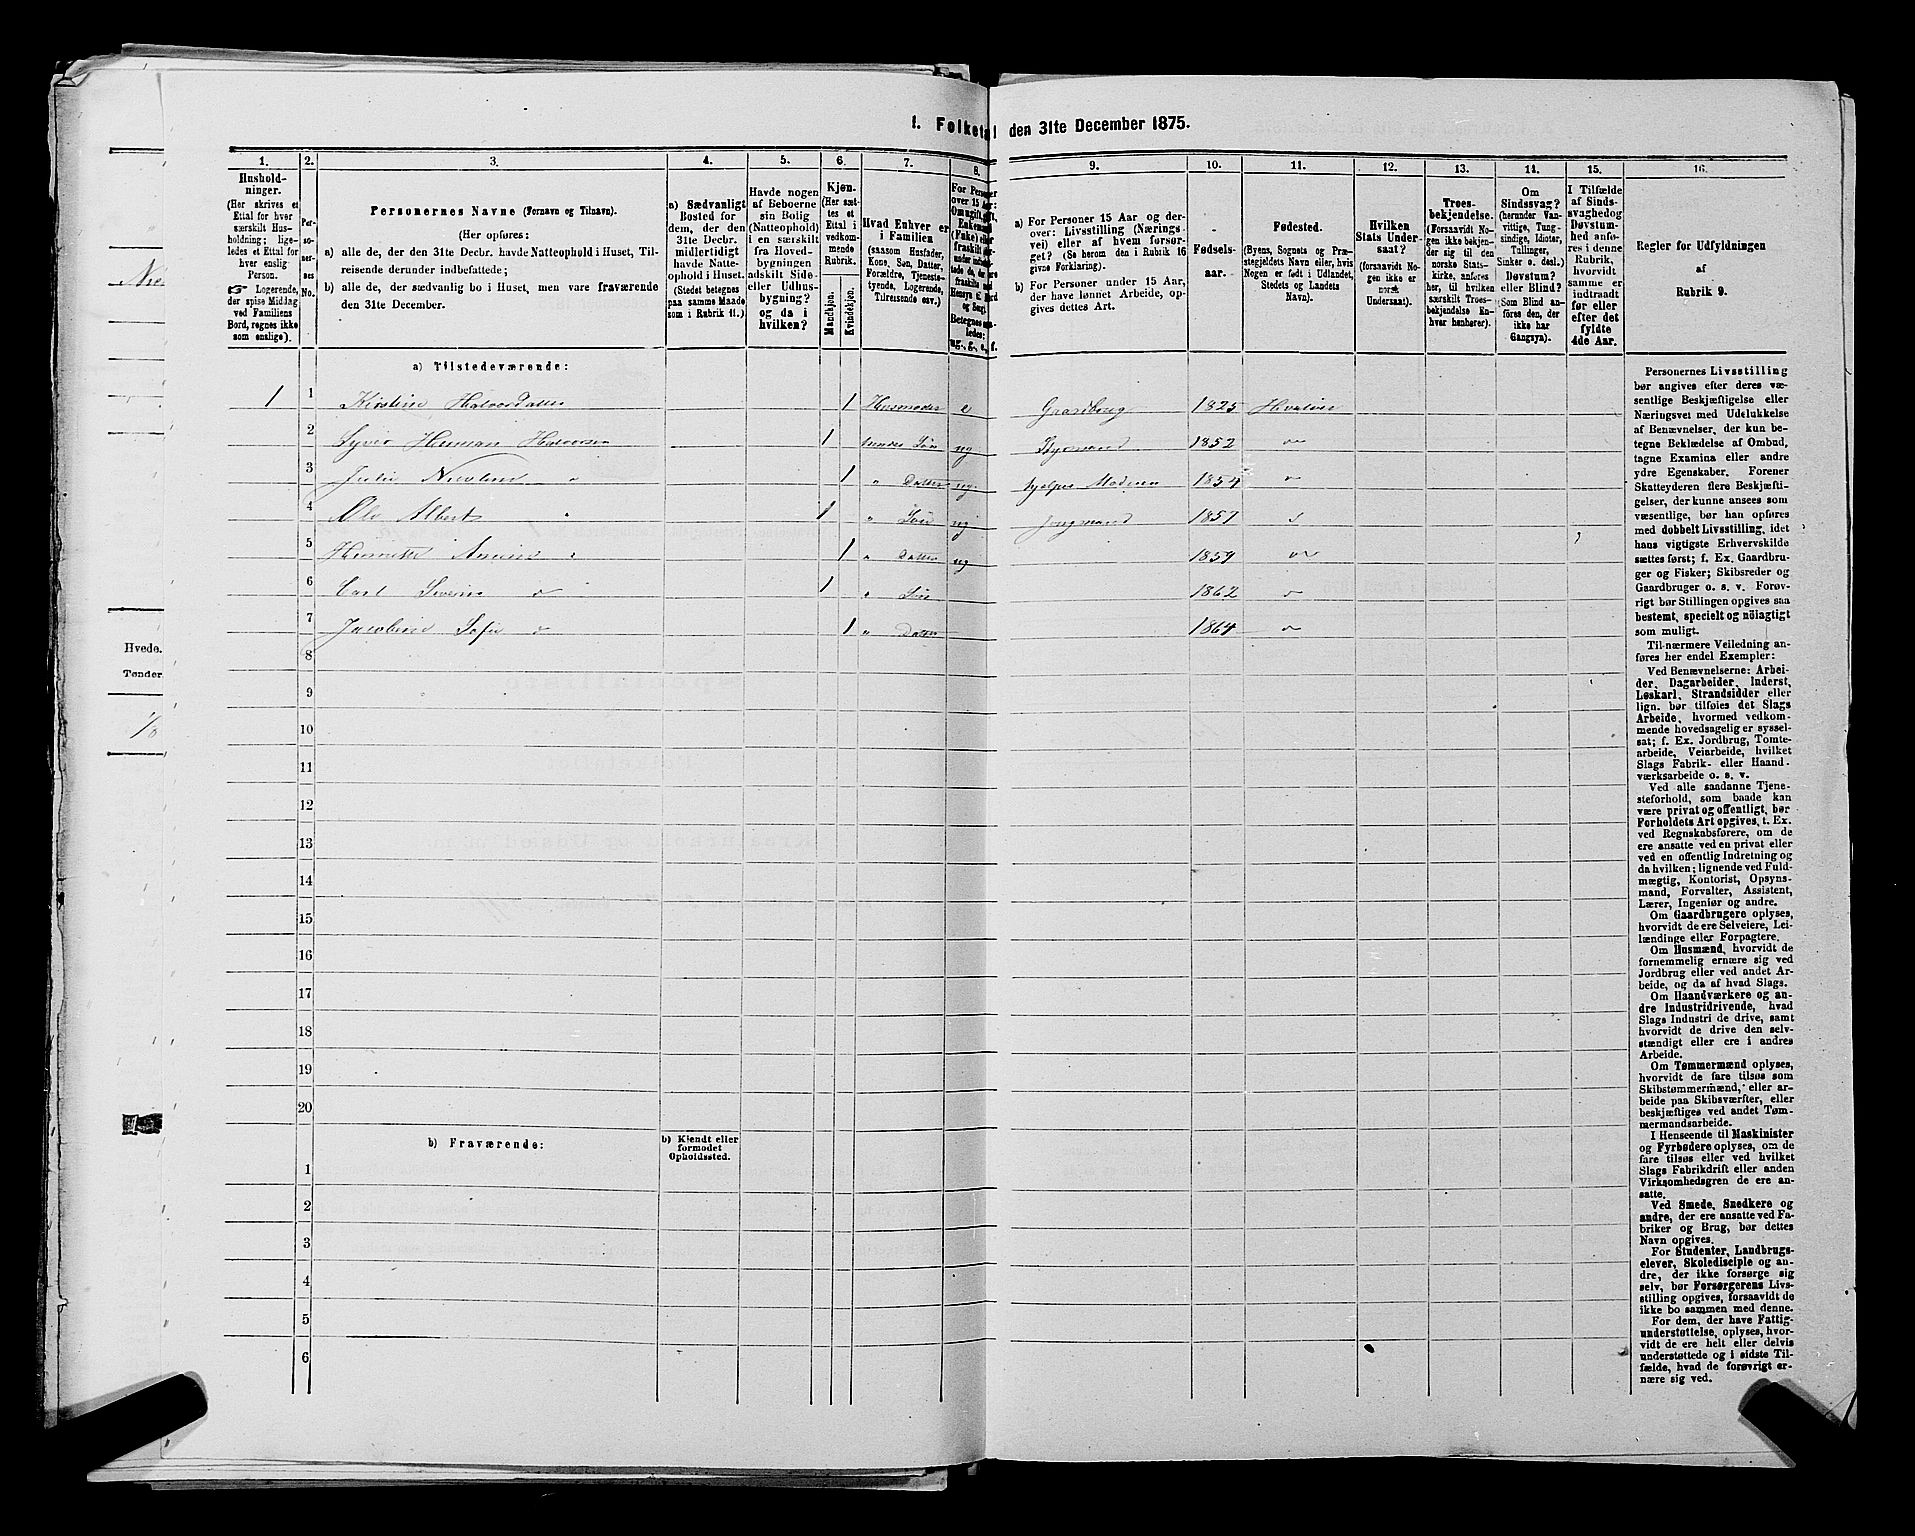 1. Folketal den 31te December 1875.
1. 2. 3. 4. 5. 6. 7. 8. 9. 10. 11. 12. 13. 14. 15. 16.
Husholdninger.
(Her skrives et
Ettal for hver
særskilt Husholdning;
ligeledes et Ettal for
hver enslig
Person.
☞ Logerende,
der spise Middag
ved Familiens
Bord, regnes ikke
som enslige).
Personernes No.
Personernes Navne (Fornavn og Tilnavn).
(Her opføres:
a) alle de, der den 31te Decbr. havde Natteophold i Huset, Tilreisende
derunder indbefattede;
b) alle de, der sædvanlig bo i Huset, men vare fraværende
den 31te December.
a) Sædvanligt
Bosted for
dem, der den
31te Decbr.
midlertidigt
havde Natteophold
i Huset.
(Stedet betegnes
paa samme Maade
som i Rubrik 11.)
Havde nogen
af Beboerne
sin Bolig
(Natteophold)
i en særskilt
fra Hovedbygningen
adskilt Side-
eller Udhusbygning?
og da i
hvilken?
Kjøn.
(Her sættes
et
Ettal i
vedkommende
Rubrik.
Mandkjøn.
Kvindekjøn.
Hvad Enhver er
i Familien
(saasom Husfader,
Kone, Søn, Datter,
Forældre, Tjenestetyende,
Logerende,
Tilreisende osv.)
a) For Personer 15 Aar og derover:
Livsstilling (Næringsvei)
eller af hvem forsørget?
(Se herom den i Rubrik 16
givne Forklaring).
b) For Personer under 15 Aar,
der have lønnet Arbeide, opgives
dettes Art.
Fødselsaar.
Fødested.
(Byens, Sognets og Præstegjeldets
Navn eller, hvis
Nogen er født i Udlandet,
Stedets og Landets
Navn).
Hvilken
Stats Undersaat?
(forsaavidt Nogen
ikke er
norsk
Undersaat).
Troesbekjendelse.
(Forsaavidt Nogen
ikke bekjender
sig til den
norske Statskirke,
anføres
her, til hvilken
særskilt Troesbekjendelse
Enhver
henhører).
Om
Sindssvag?
(herunder Vanvittige,
Tungsindige,
Idioter,
Tullinger,
Sinker o. desl.)
Døvstum?
eller Blind?
(Som Blind anføres
den, der
ikke har
Gangsyn).
I Tilfælde
af Sindssvaghed
og
Døvstumhed
anføres
i denne
Rubrik,
hvorvidt
samme er
indtraadt
før eller
efter det
fyldte
4de Aar.
Regler for Udfyldningen
af
Rubrik 9.
a) Tilstedeværende:
1 1 Kirstine Halvordatter 1 Husmoder e Gaardbrug 1825 Hvaløer
2 Syver Herman Halvorsen 1 hendes Søn ug 1852
3 Julie Nicoline 1 " Datter ug. hjelper Moderen 1854
4 Ole Albert 1 " Søn ug Jungmand 1857
5 1 " Datter ug 1859
6 Carl Severin 1 " Søn 1862
7 Jacobine Sofie 1 " Datter 1864
8
9
10
11
12
13
14
15
16
17
18
19
20
b) Fraværende:
b) Kjendt eller
formodet
Opholdssted.
1
2
3
4
5
6
Personernes Livsstilling
bør angives efter deres væsentlige
Beskjæftigelse eller
Næringsvei med Udelukkelse
af Benævnelser, der kun betegne
Beklædelse af Ombud,
tagne Examina eller andre
ydre Egenskaber. Forener
Skatteyderen flere Beskjæftigelser,
der kunne ansees som
væsentlige, bør han opføres
med dobbelt Livsstilling, idet
hans vigtigste Erhvervskilde
sættes først; f. Ex. Gaardbruger
og Fisker; Skibsreder og
Gaardbruger o. s. v. Forøvrigt
bør Stillingen opgives saa
bestemt, specielt og nöiagtigt
som muligt.
Til nærmere Veiledning anføres
her endel Exempler:
Ved Benævnelserne: Arbeider,
Dagarbeider, Inderst,
Løskarl, Strandsidder eller
lign. bør tilføies det Slags
Arbeide, hvormed vedkommende
hovedsagelig er sysselsat;
f. Ex. Jordbrug, Tomtearbeide,
Veiarbeide, hvilket
Slags Fabrik- eller Haandværksarbeide
o. s. v.
Ved alle saadanne Tjenesteforhold,
som baade kan
være privat og offentligt, bør
Forholdets Art opgives, t. Ex.
ved Regnskabsførere, om de
ere ansatte ved en privat eller
ved en offentlig Indretning og
da hvilken; lignende ved Fuldmægtig,
Kontorist, Opsynsmand,
Forvalter, Assistent,
Lærer, Ingeniør og andre.
Om Gaardbrugere oplyses,
hvorvidt de ere Selveiere, Leilændinge
eller Forpagtere.
Om Husmænd, hvorvidt de
fornemmelig ernære sig ved
Jordbrug eller ved andet Arbeide,
og da af hvad Slags.
Om Haandværkere og andre
Industridrivende, hvad
Slags Industri de drive, samt
hvorvidt de drive den selvstændigt
eller ere i andres
Arbeide.
Om Tømmermænd oplyses,
hvorvidt de fare tilsøs som
Skibstømmermænd, eller arbeide
paa Skibsværfter, eller
beskjæftiges ved andet Tømmermandsarbeide.
I Henseende til Maskinister
og Fyrbødere oplyses, om de
fare tilsøs eller ved hvilket
Slags Fabrikdrift eller anden
Virksomhedsgren de ere ansatte.
Ved Smede, Snedkere og
andre, der ere ansatte ved Fabriker
og Brug, bør dettes
Navn opgives.
For Studenter, Landbrugselever,
Skoledisciple og andre,
der ikke forsørge sig
selv, bør Forsørgerens Livsstilling
opgives, forsaavidt de
ikke bo sammen med denne.
For dem, der have Fattigunderstøttelse,
oplyses, hvorvidt
de ere helt eller delvis
understøttede og i sidste Tilfælde,
hvad de forøvrigt ernære
sig ved.
Hvede.
Tønder.
1/8